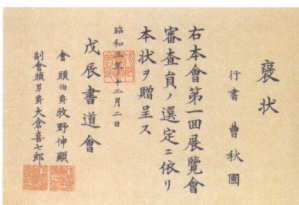 褒状
行書 曹秋圃
右本會第一回展覽會
審査員ノ選定ニ依リ
本状ヲ贈呈ス
昭和三年十二月二日
戊辰書道會
會頭伯爵牧野伸顯
副會頭男爵大倉喜七郎